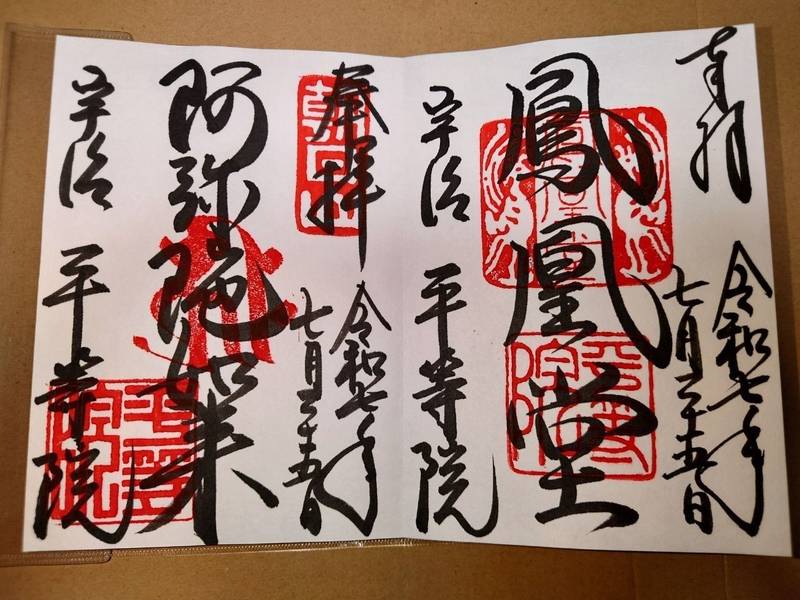 奉拝
令和七年
七月二十五日
鳳凰堂
平等院
宇治 平等院
奉拝
朝日山
令和七年
七月二十五日
阿弥陀如来
宇治 平等院
平等院